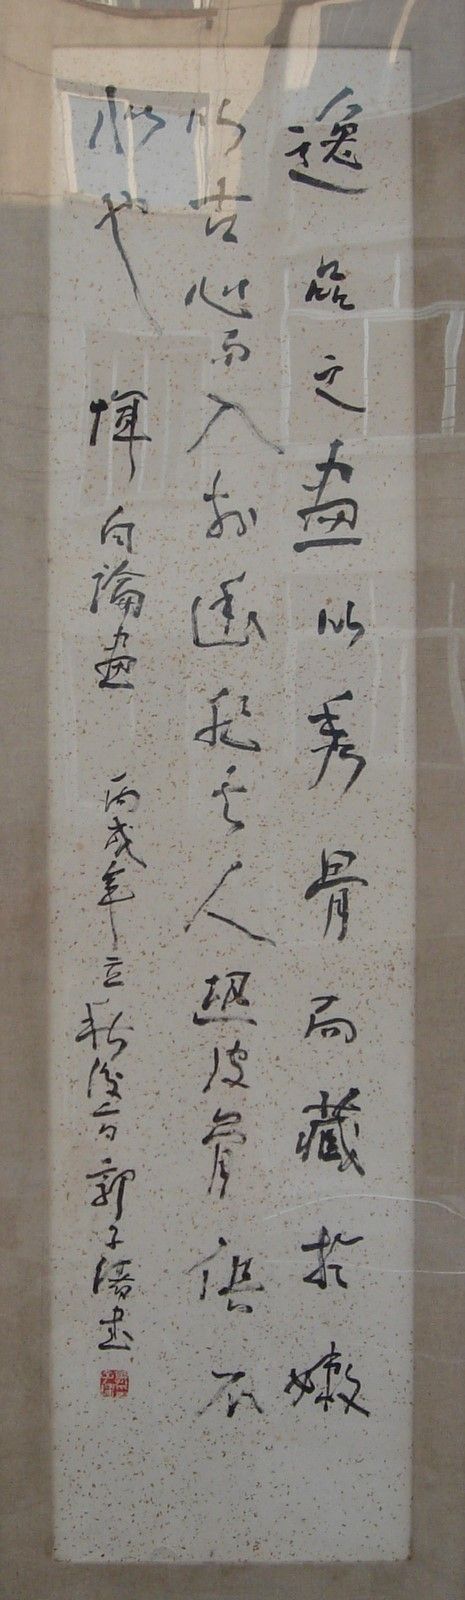 逸品之畫以秀骨而藏於嫩
以古心而入於幽非其人恐皮骨俱不
似也 惲向論畫 丙戌年立秋後日 郭子緒書